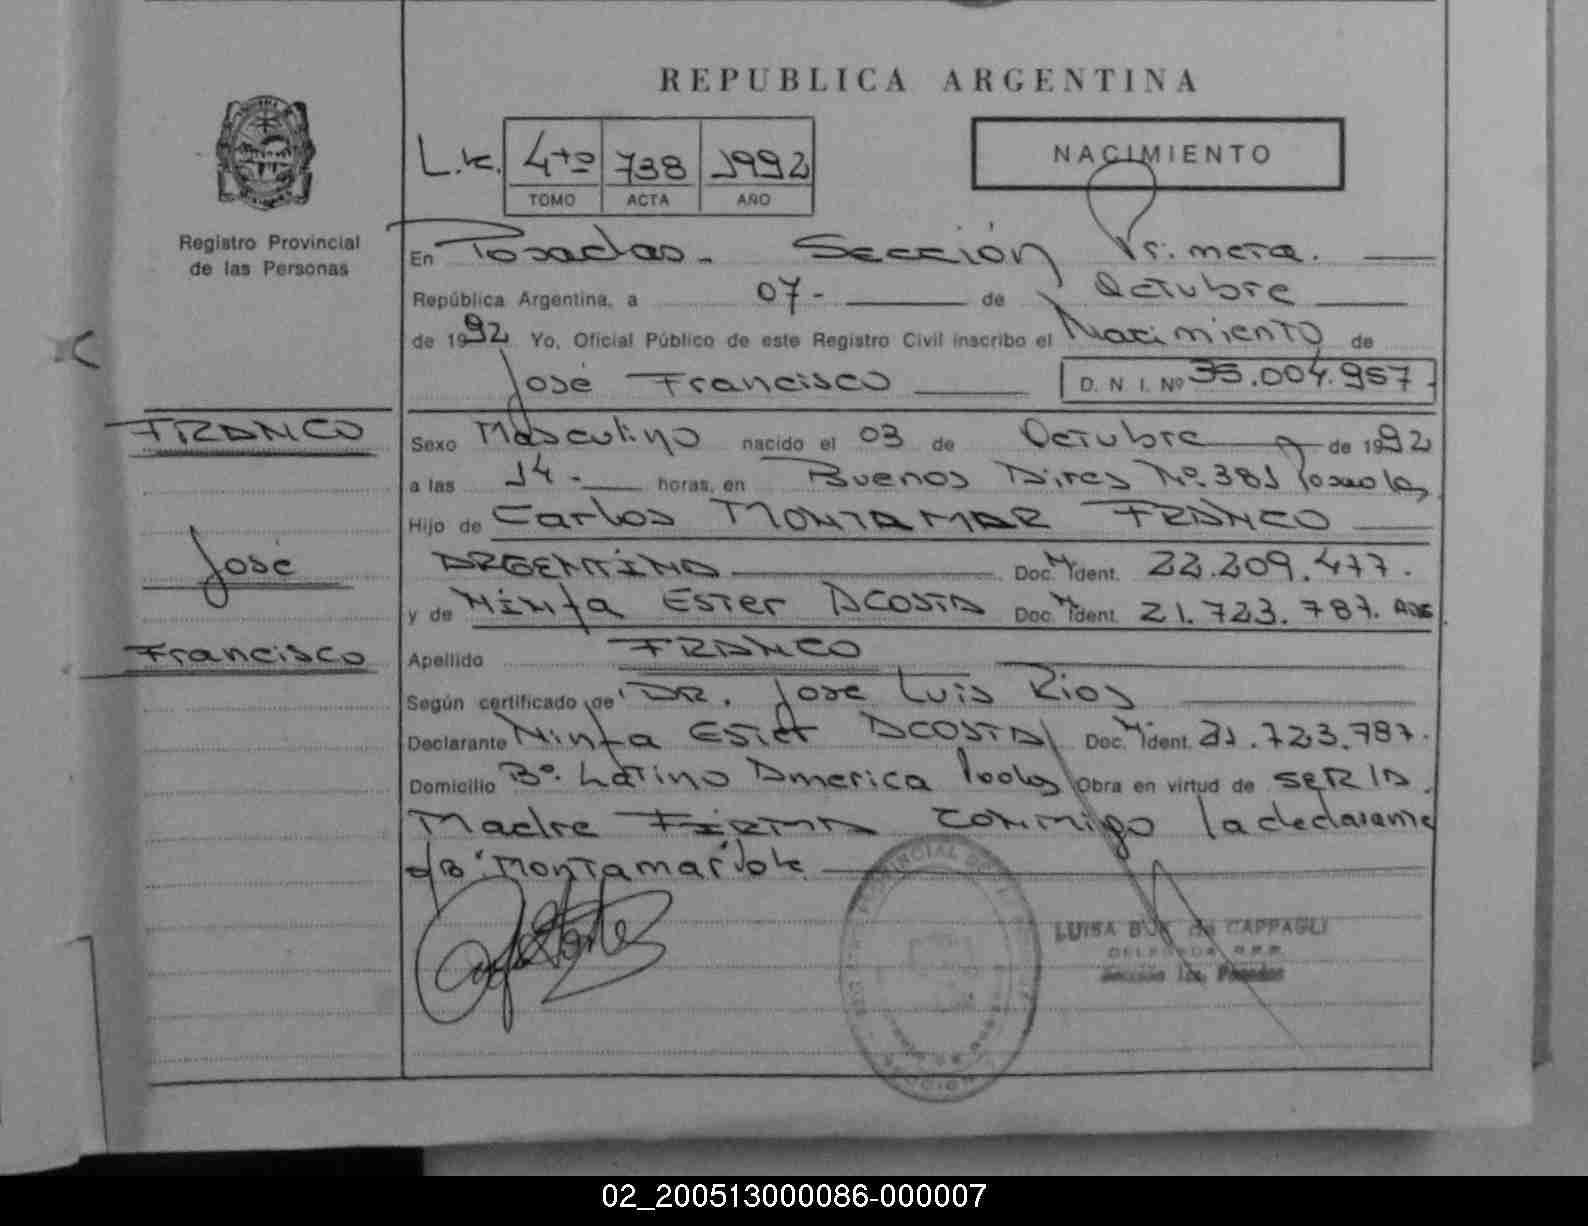 REPUBLICA ARGENTINA
L.k. 4to 738 1992
TOMO ACTA AÑO
NACIMIENTO
Registro Provincial
de las Personas
En Posadas. Sección Primera.
República Argentina, a 07- de Octubre
de 1992 Yo, Oficial Público de este Registro Civil inscribo el Nacimiento de
José Francisco D. N. I. Nº 35.004.957.
FRANCO
José
Francisco
Sexo Masculino nacido el 03 de Octubre de 1992
a las 14.- horas, en Buenos Aires Nº 381 Posadas
Hijo de Carlos MONTAMAR FRANCO
ARGENTINA Doc. M. Ident. 22.209.477.
y de Ninfa Ester ACOSTA Doc. M. Ident. 21.723.787.
Apellido FRANCO
Según certificado de DR. Jose Luis Rios
Declarante Ninfa Ester ACOSTA Doc. M. Ident. 21.723.787.
Domicilio Bº. Latino America Obra en virtud de SER LA
Madre FIRMA CONMIGO la declarante
"Montamar"
PROVINCIAL DE
LUISA de CAPPAGLI
DELEGADA
Sección 1ra. Posadas
02_200513000086-000007